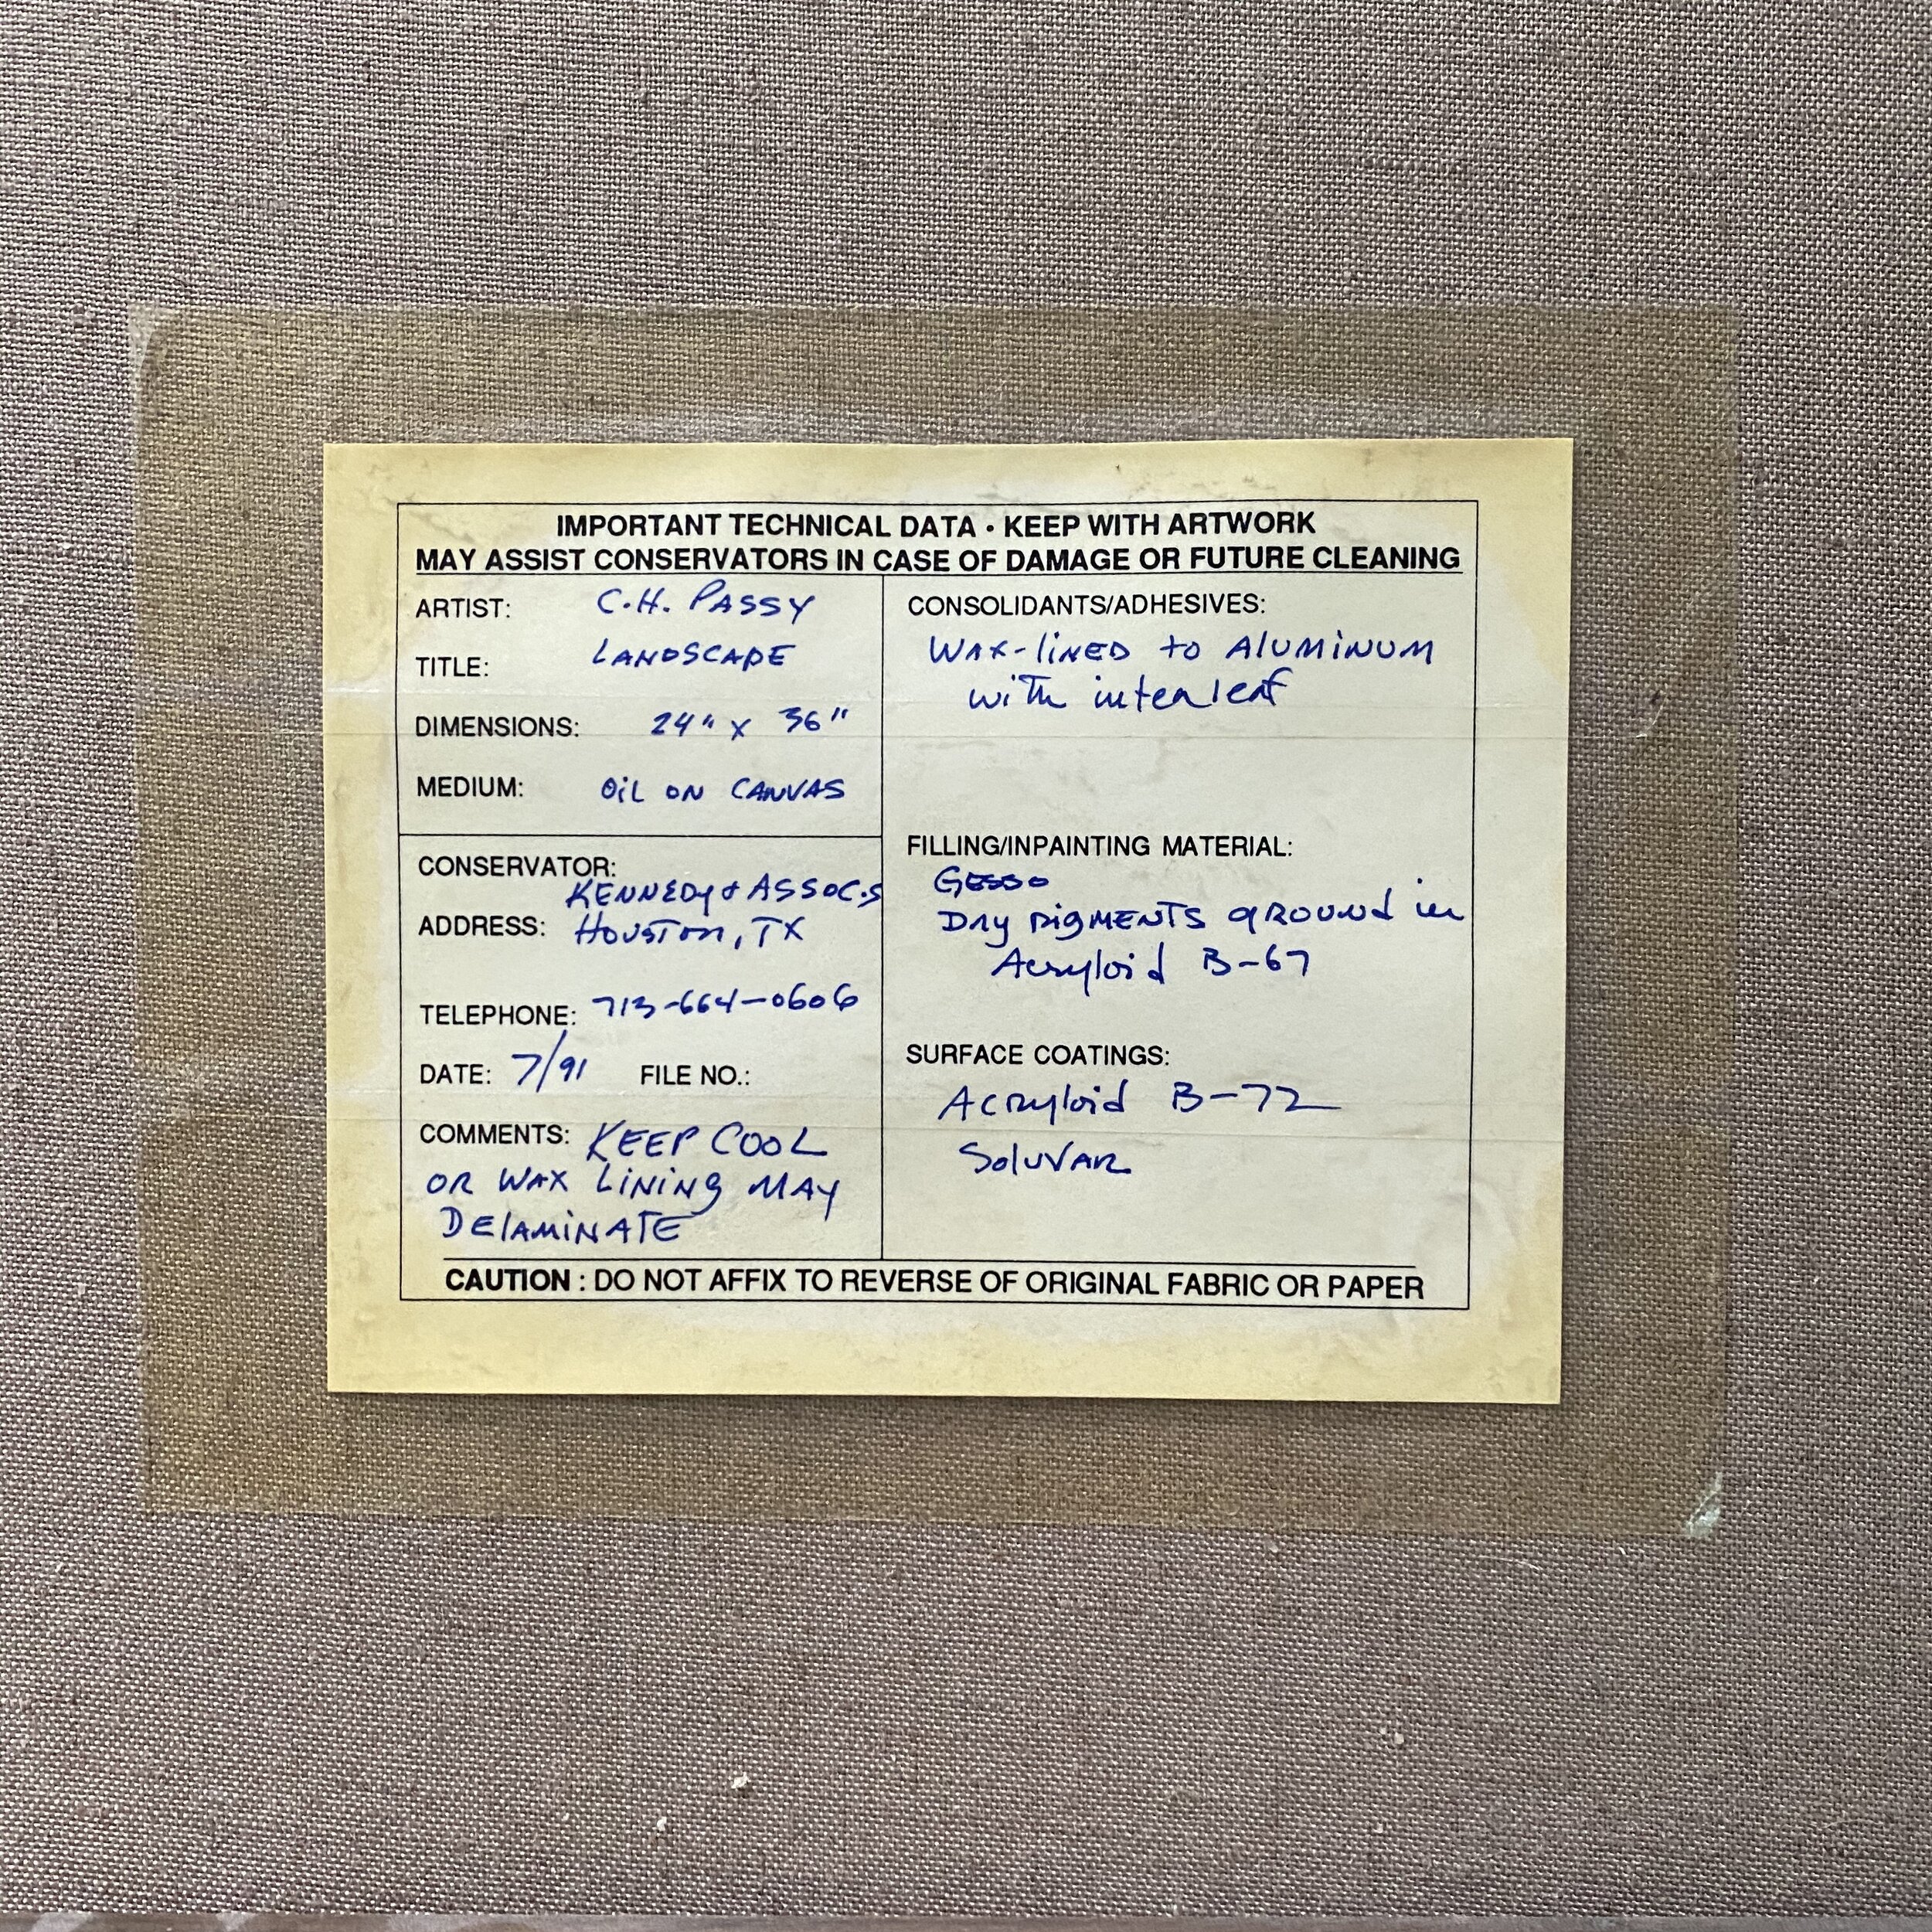 IMPORTANT TECHNICAL DATA • KEEP WITH ARTWORK
MAY ASSIST CONSERVATORS IN CASE OF DAMAGE OR FUTURE CLEANING
ARTIST: C.H. PASSY
TITLE: LANDSCAPE
DIMENSIONS: 24" x 36"
MEDIUM: OiL ON CANVAS
CONSERVATOR: KENNEDY & ASSOC.S
ADDRESS: HOUSTON, TX
TELEPHONE: 713-664-0606
DATE: 7/91 FILE NO.:
COMMENTS: KEEP COOL
OR WAX LINING MAY
DELAMINATE
CONSOLIDANTS/ADHESIVES:
WAX-LINED to ALUMINUM
with interleaf
FILLING/INPAINTING MATERIAL:
GESSO
DRY PIGMENTS GROUND in
Acryloid B-67
SURFACE COATINGS:
Acryloid B-72
SOLUVAR
CAUTION : DO NOT AFFIX TO REVERSE OF ORIGINAL FABRIC OR PAPER